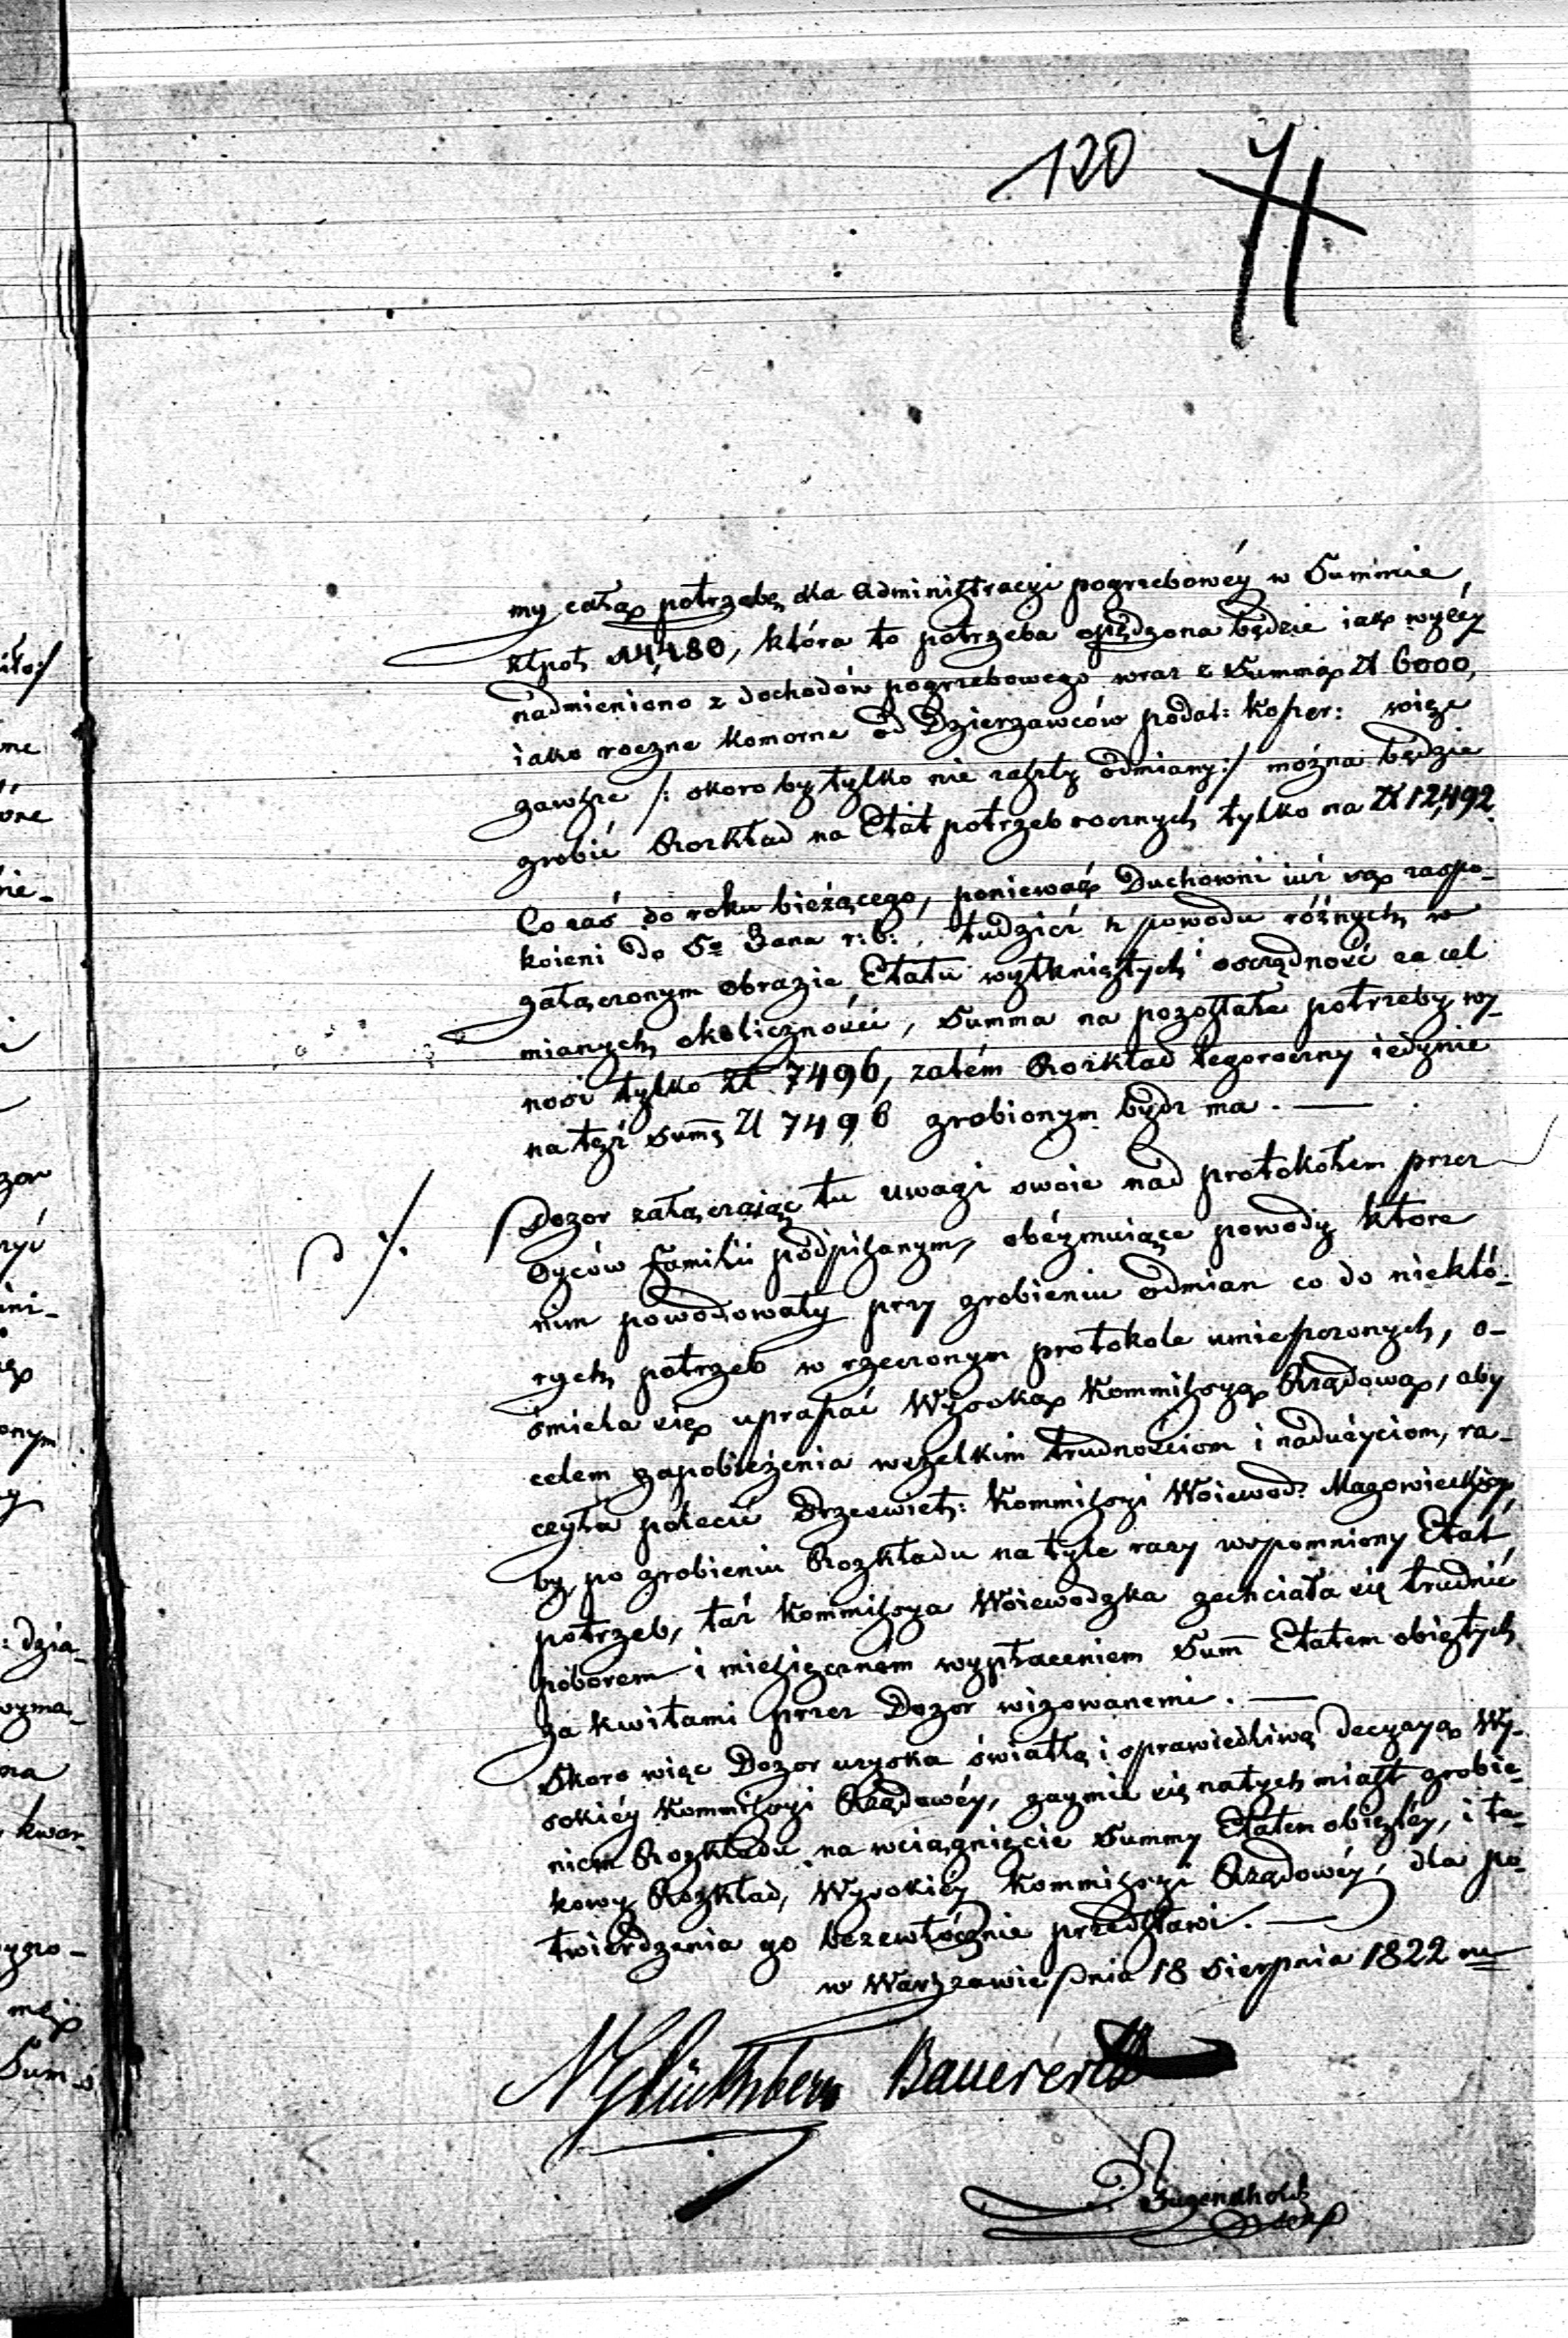 120 71
my całą potrzebę dla Administracyi pogrzebowéy w Summie
złpol 14,480, która to potrzeba opędzona będzie iak wyżéy
nadmieniono z dochodów pogrzebowego wraz z Summą Zł 6000,
iako roczne komorne od Dzierzawców podat: koszer: więc
zawsze /: skoro by tylko nie zaszły odmiany :/ można będzie
zrobić Rozkład na Etat potrzeb rocznych tylko na Zł 12,492.
Co zaś do roku bieżącego, ponieważ Duchowni iuż są zaspo-
koieni do Sgo Jana r: b:, tudzież z powodu różnych w
załączonym obrazie Etatu wytkniętych osczędność za cel
mianych okoliczności, Summa na pozostałe potrzeby wy-
nosi tylko Zł. 7496, zatém Rozkład tegoroczny iedynie
na tęż Summę Zł 7496 zrobionym bydź ma. —
Dozor załączaiąc tu uwagi swoie nad protokołem przez
Oyców Familii podpisanym, obéymuiące powody które
nim powodowały przy zrobieniu odmian co do niektó-
rych potrzeb w rzeczonym protokole umieszczonych, o-
śmiela się upraszać Wysoką Kommissyą Rządową, aby
celem zapobieżenia wszelkim trudnościom i nadużyciom, ra-
czyła polecić Prześwietn: Kommissyi Woiewod: Mazowieckiey,
by po zrobieniu Rozkładu na tyle razy wspomniony Etat
potrzeb, taż Kommissya Woiewodzka zechciała się trudnić
poborem i miesięcznem wypłaceniem Summ Etatem obiętych
za kwitami przez Dozor wizowanemi. —
Skoro więc Dozor uzyska światłą i sprawiedliwą decyzyą Wy-
sokiéy Kommissyi Rządowéy, zaymie się natychmiast zrobie-
niem Rozkładu na wciągnięcie Summy Etatem obiętéy, i ta-
kowy Rozkład, Wysokiéy Kommissyi Rządowéy, dla po-
twierdzenia go bezzwłócznie przedstawi. —
w Warszawie dnia 18 Sierpnia 1822 r
M Glücksberg Bauerertz
Jugendholtz